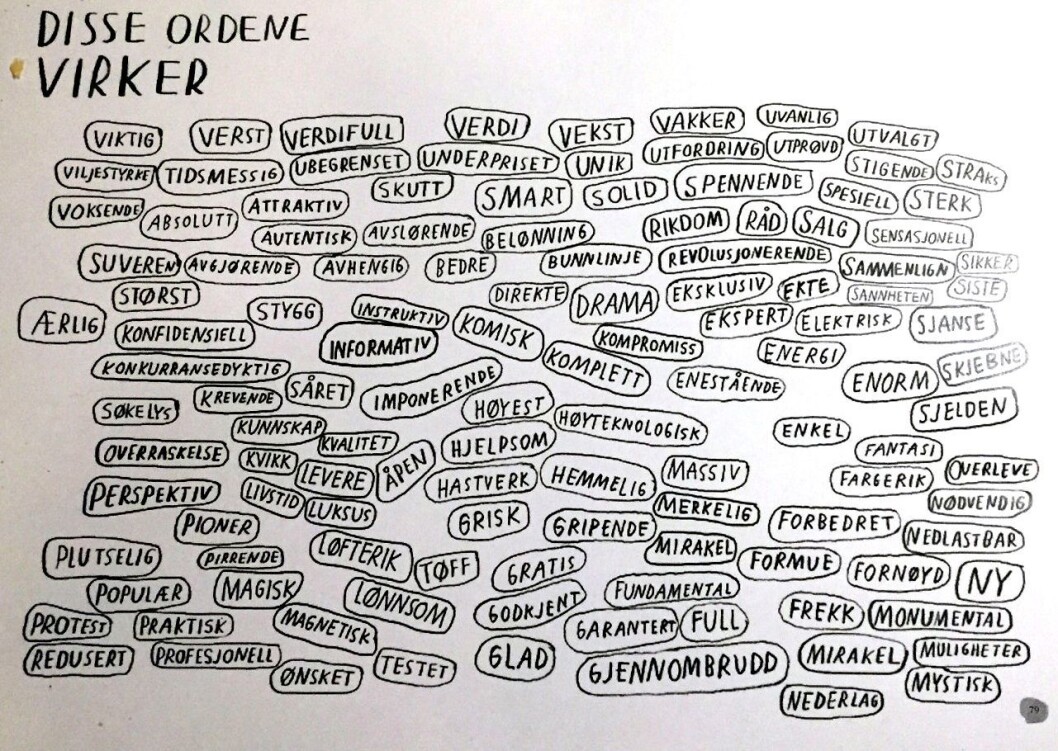 DISSE ORDENE
VIRKER
VIKTIG VERST VERDIFULL VERDI VEKST VAKKER UVANLIG UTVALGT
VILJESTYRKE TIDSMESSIG UBEGRENSET UNDERPRISET UNIK UTFORDRING UTPRØVD STIGENDE STRAKS
VOKSENDE ABSOLUTT ATTRAKTIV SKUTT SMART SOLID SPENNENDE SPESIELL STERK
AUTENTISK AVSLØRENDE BELØNNING RIKDOM RÅD SALG SENSASJONELL
SUVEREN AVGJØRENDE AVHENGIG BEDRE BUNNLINJE REVOLUSJONERENDE SAMMENLIGN SIKKER
STØRST DIREKTE DRAMA EKSKLUSIV EKTE SANNHETEN SISTE
ÆRLIG KONFIDENSIELL STYGG INSTRUKTIV KOMISK EKSPERT ELEKTRISK SJANSE
INFORMATIV KOMPROMISS ENERGI
KONKURRANSEDYKTIG KOMPLETT ENESTÅENDE ENORM SKJEBNE
KREVENDE SÅRET IMPONERENDE
SØKELYS HØYEST SJELDEN
KUNNSKAP KVALITET HØYTEKNOLOGISK ENKEL
OVERRASKELSE KVIKK LEVERE ÅPEN HJELPSOM FANTASI
HASTVERK HEMMELIG MASSIV FARGERIK OVERLEVE
PERSPEKTIV LIVSTID LUKSUS MERKELIG NØDVENDIG
PIONER GRISK GRIPENDE FORBEDRET NEDLASTBAR
PLUTSELIG PIRRENDE LØFTERIK TØFF GRATIS MIRAKEL FORMUE FORNØYD NY
POPULÆR MAGISK LØNNSOM GODKJENT FUNDAMENTAL
PROTEST PRAKTISK MAGNETISK GARANTERT FULL FREKK MONUMENTAL
REDUSERT PROFESJONELL ØNSKET TESTET GLAD GJENNOMBRUDD MIRAKEL MULIGHETER
NEDERLAG MYSTISK
79